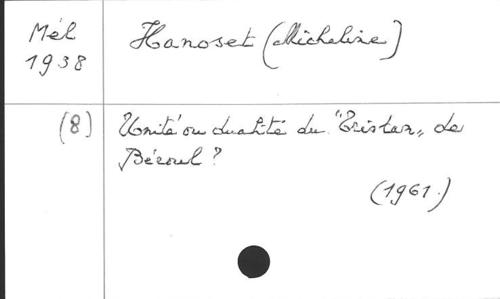 Mél
1938
Hanoset (Micheline)
(8)
Unité ou dualité du "Tristan" de
Béroul ?
(1961)